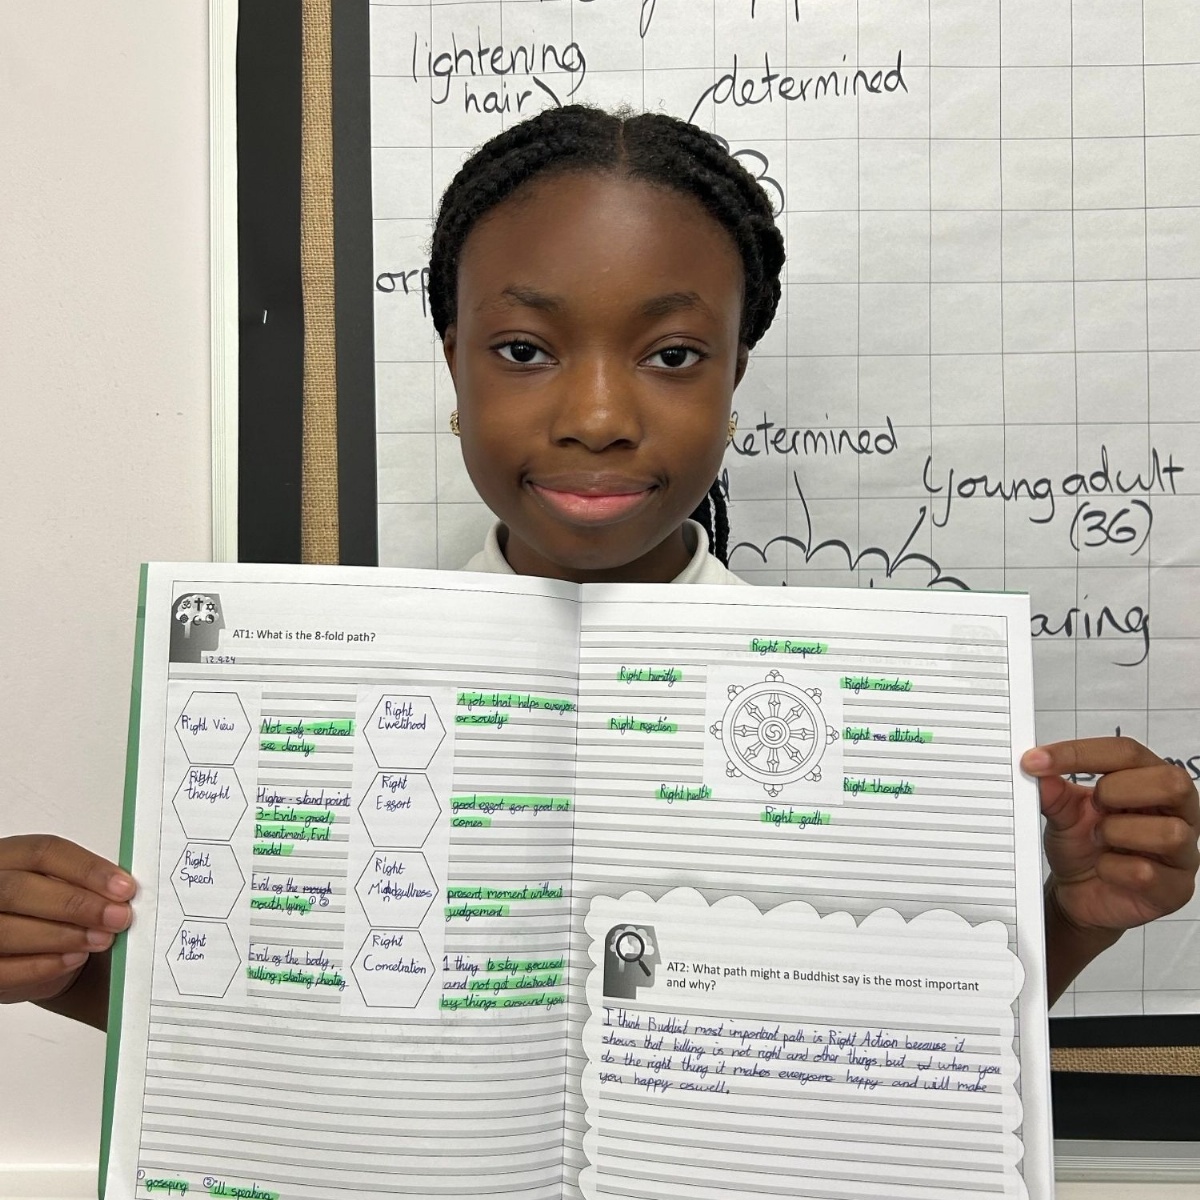 lightening
hair
determined
orp
determined
Young adult
(36)
aring
AT1: What is the 8-fold path?
12.9.24
Right view
Not self-centered
see clearly
Right
thought
Higher-stand point
3-Evils-greed,
Resentment, Evil
minded
Right
Speech
Evil of the mough
mouth, lying ① ②
Right
Action
Evil of the body,
killing, stealing, cheating
① gossiping ② ill speaking
Right
Livelihood
A job that helps everyone
or society
Right
Effort
good effort for good out
comes
Right
Mindfullness
present moment without
judgement
Right
Concetration
1 thing to stay focused
and not get distracted
by things around you
Right Respect
Right
Right mindset
Right rejection
Right attitude
Right health
Right thoughts
Right faith
AT2: What path might a Buddhist say is the most important
and why?
I think Buddist most important path is Right Action because it
shows that killing is not right and other things, but when you
do the right thing it makes everyone happy and will make
you happy aswell.